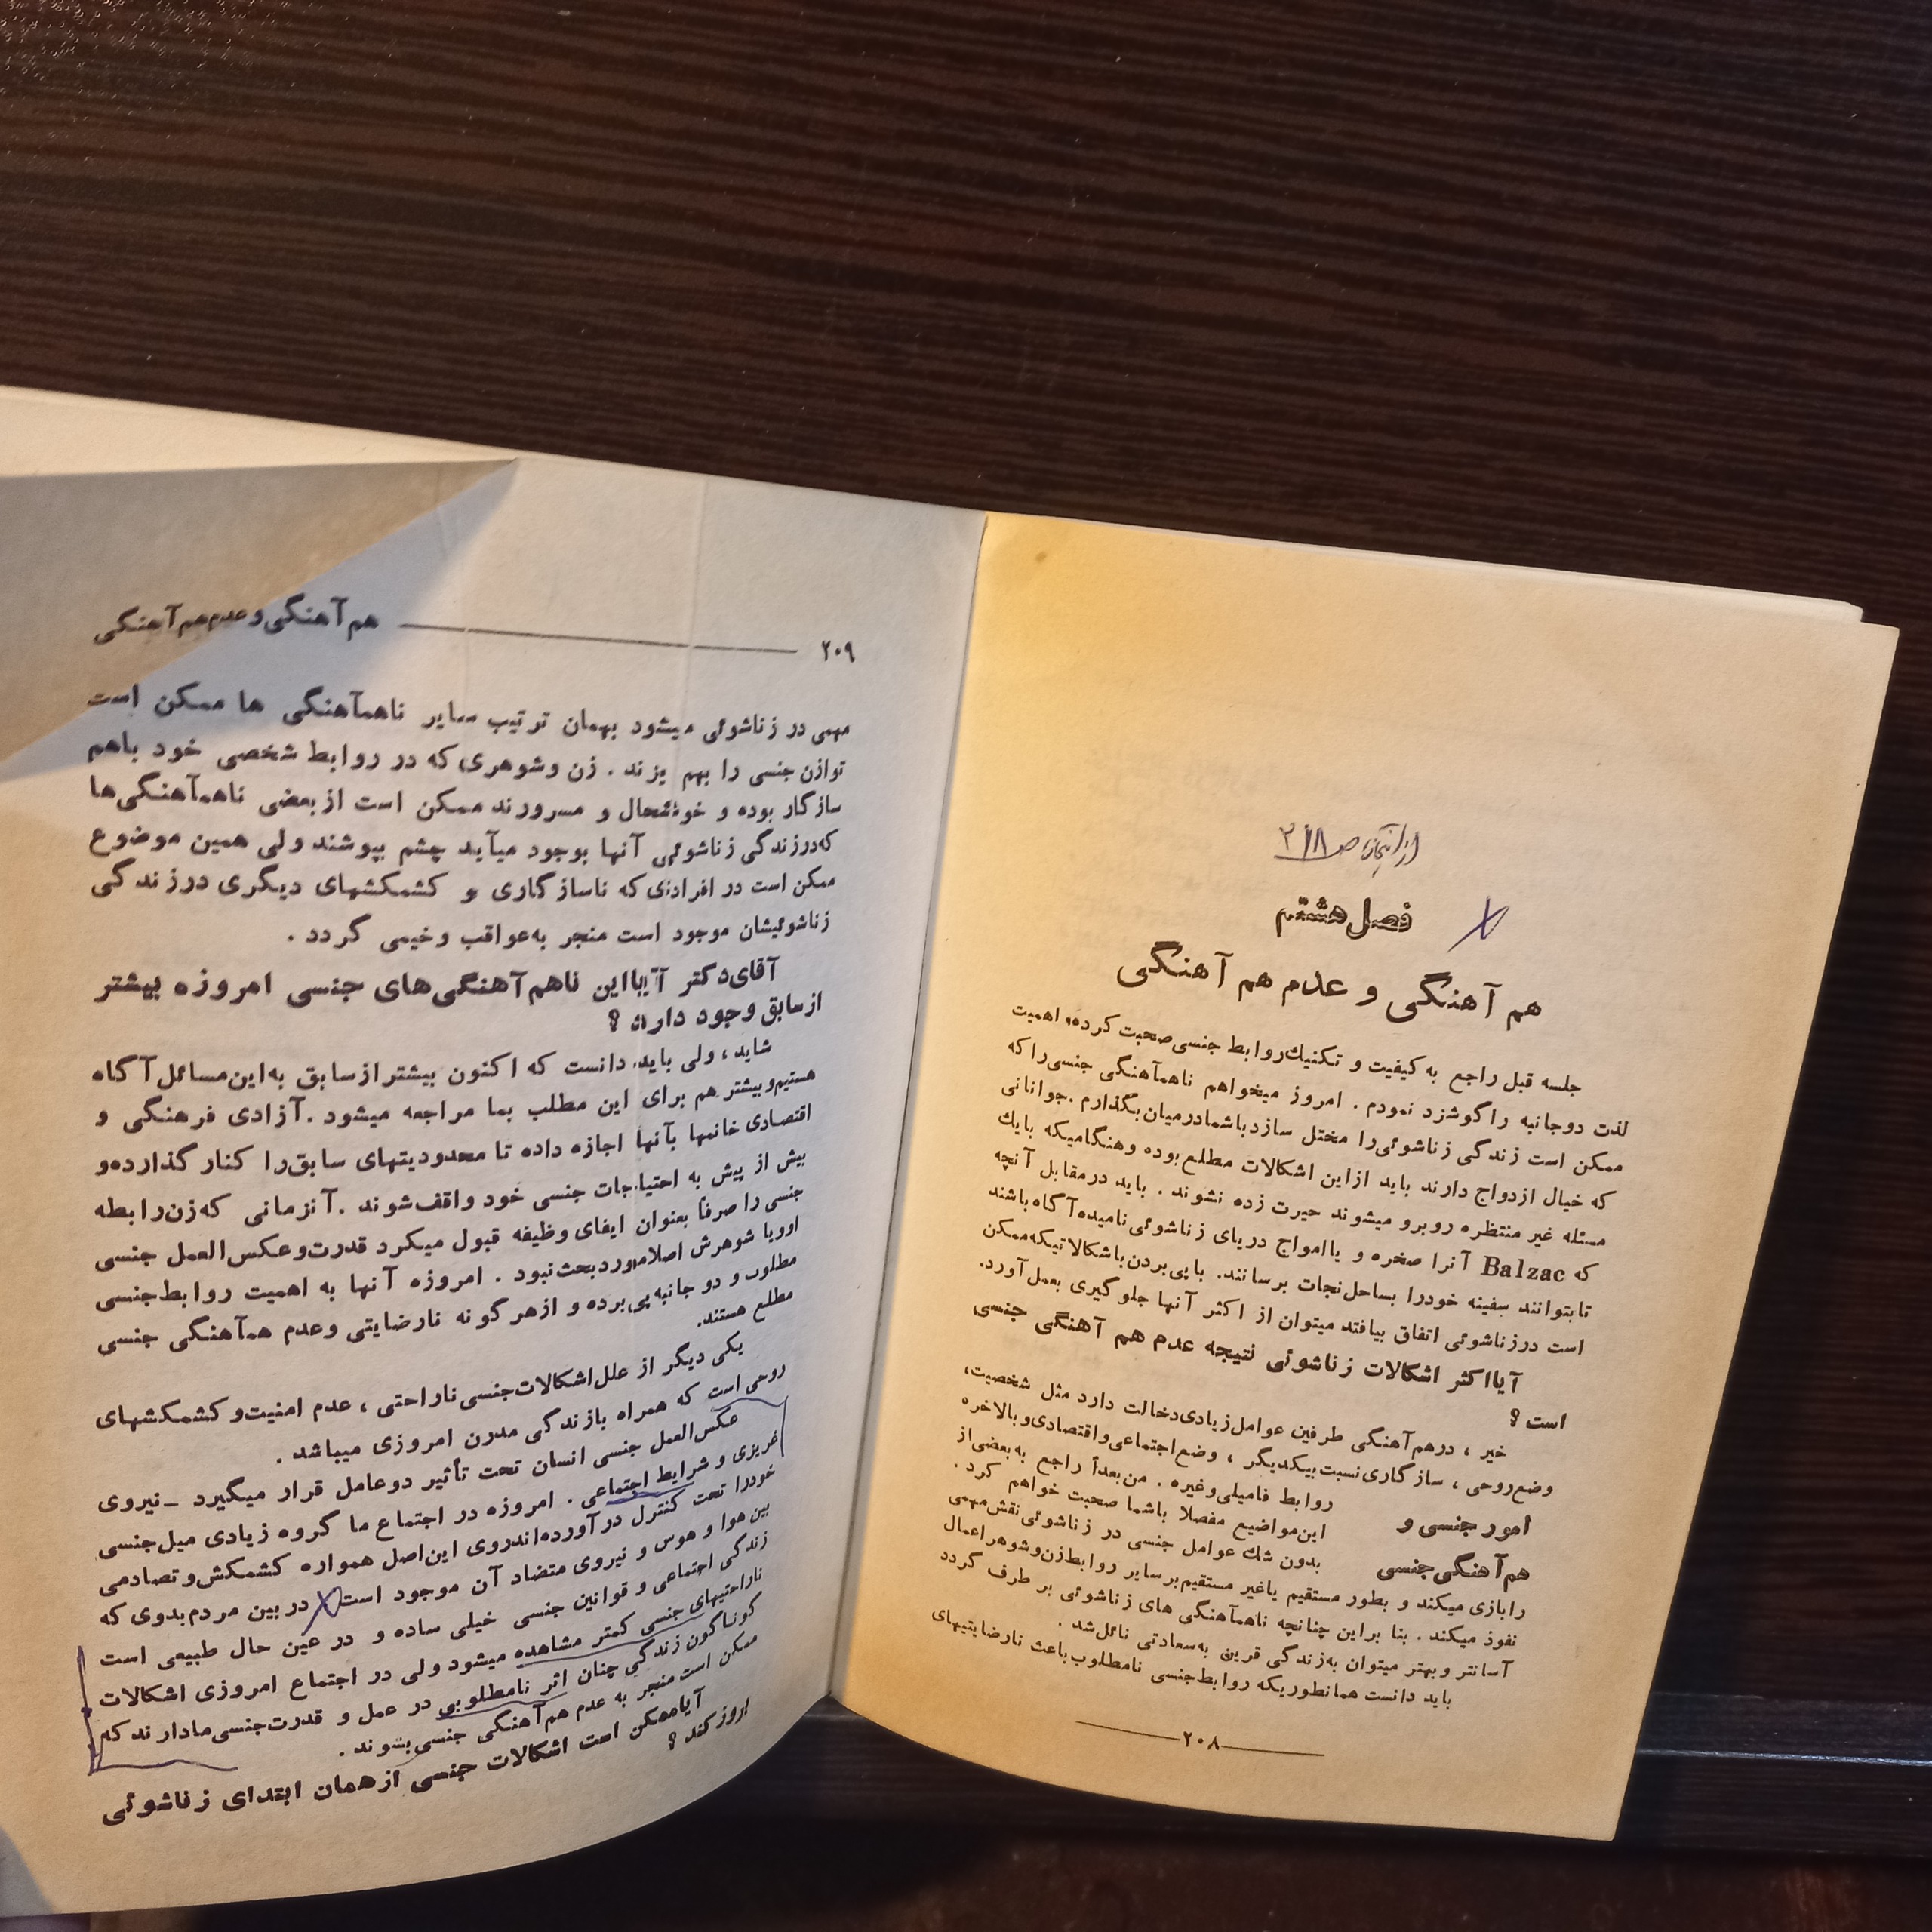 از اینجا تا ص ۲۱۸
فصل هشتم
هم آهنگی و عدم هم آهنگی
جلسه قبل راجع به کیفیت و تکنیك روابط جنسی صحبت کرده، اهمیت
لذت دوجانبه را گوشزد نمودم . امروز میخواهم ناهمآهنگی جنسی را که
ممکن است زندگی زناشوئی را مختل سازد باشما درمیان بگذارم . جوانانی
که خیال ازدواج دارند باید از این اشکالات مطلع بوده و هنگامیکه بایك
مسئله غیر منتظره روبرو میشوند حیرت زده نشوند . باید در مقابل آنچه
که Balzac آنرا صخره و یا امواج دریای زناشوئی نامیده آگاه باشند
تا بتوانند سفینه خود را بساحل نجات برسانند. با پی بردن باشکالاتیکه ممکن
است در زناشوئی اتفاق بیافتد میتوان از اکثر آنها جلوگیری بعمل آورد.
آیا اکثر اشکالات زناشوئی نتیجه عدم هم آهنگی جنسی
است ؟
خیر ، در هم آهنگی طرفین عوامل زیادی دخالت دارد مثل شخصیت،
وضع روحی ، سازگاری نسبت بیکدیگر ، وضع اجتماعی و اقتصادی و بالاخره
روابط فامیلی وغیره . من بعداً راجع به بعضی از
این مواضیع مفصلا باشما صحبت خواهم کرد .
امور جنسی و
هم آهنگی جنسی
بدون شك عوامل جنسی در زناشوئی نقش مهمی
را بازی میکند و بطور مستقیم یا غیر مستقیم بر سایر روابط زن و شوهر اعمال
نفوذ میکند . بنا براین چنانچه ناهمآهنگی های زناشوئی بر طرف گردد
آسانتر و بهتر میتوان به زندگی قرین به سعادتی نائل شد .
باید دانست همانطوریکه روابط جنسی نامطلوب باعث نارضایتیهای
۲۰۸
۲۰۹ هم آهنگی و عدم هم آهنگی
مهمی در زناشوئی میشود بهمان ترتیب سایر ناهمآهنگی ها ممکن است
توازن جنسی را بهم یزند . زن و شوهری که در روابط شخصی خود باهم
سازگار بوده و خوشحال و مسرورند ممکن است از بعضی ناهمآهنگی‌ها
که در زندگی زناشوئی آنها بوجود میآید چشم بپوشند ولی همین موضوع
ممکن است در افرادی که ناسازگاری و کشمکشهای دیگری در زندگی
زناشوئیشان موجود است منجر به عواقب وخیمی گردد .
آقای دکتر آیا این ناهم آهنگی‌های جنسی امروزه بیشتر
از سابق وجود دارد ؟
شاید ، ولی باید دانست که اکنون بیشتر از سابق به این مسائل آگاه
هستیم و بیشتر هم برای این مطلب بما مراجعه میشود . آزادی فرهنگی و
اقتصادی خانمها بآنها اجازه داده تا محدودیتهای سابق را کنار گذارده و
بیش از پیش به احتیاجات جنسی خود واقف شوند . آنزمانی که زن رابطه
جنسی را صرفاً بعنوان ایفای وظیفه قبول میکرد قدرت و عکس العمل جنسی
او و یا شوهرش اصلا مورد بحث نبود . امروزه آنها به اهمیت روابط جنسی
مطلوب و دو جانبه پی برده و از هر گونه نارضایتی و عدم همآهنگی جنسی
مطلع هستند.
یکی دیگر از علل اشکالات جنسی ناراحتی ، عدم امنیت و کشمکشهای
روحی است که همراه با زندگی مدرن امروزی میباشد .
عکس العمل جنسی انسان تحت تأثیر دو عامل قرار میگیرد ـ نیروی
غریزی و شرایط اجتماعی . امروزه در اجتماع ما گروه زیادی میل جنسی
خود را تحت کنترل در آورده‌اند روی این اصل همواره کشمکش و تصادمی
بین هوا و هوس و نیروی متضاد آن موجود است در بین مردم بدوی که
زندگی اجتماعی و قوانین جنسی خیلی ساده و در عین حال طبیعی است
ناراحتیهای جنسی کمتر مشاهده میشود ولی در اجتماع امروزی اشکالات
گوناگون زندگی چنان اثر نامطلوبی در عمل و قدرت جنسی ما دارند که
ممکن است منجر به عدم هم آهنگی جنسی بشوند .
آیا ممکن است اشکالات جنسی از همان ابتدای زناشوئی
بروز کند ؟